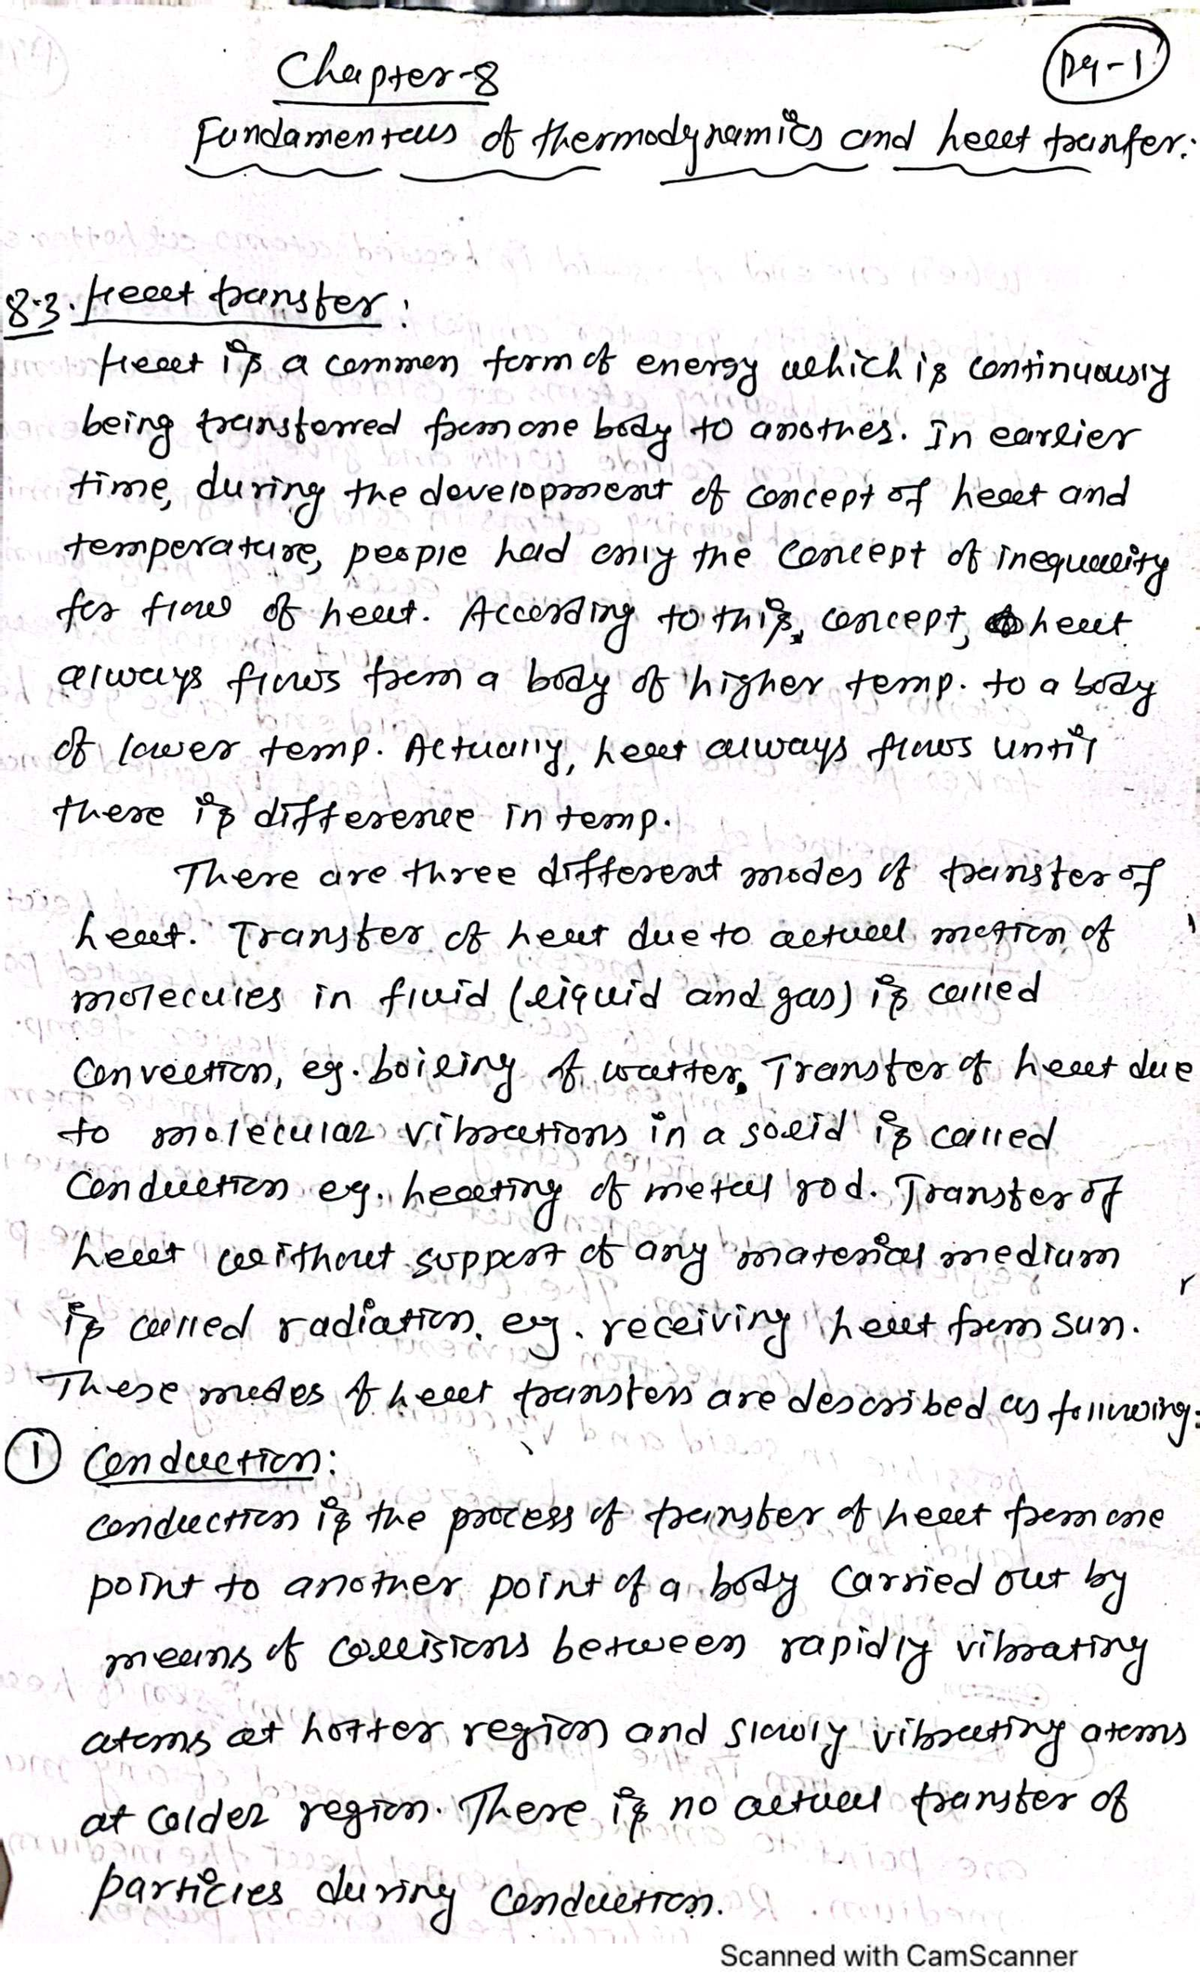 Pg-1
Chapter-8
Fundamentals of thermodynamics and heat tranfer:
8.3. Heat transfer:
Heat is a common form of energy which is continuously
being transferred from one body to another. In earlier
time, during the development of concept of heat and
temperature, people had only the concept of inequality
for flow of heat. According to this, concept, heat
always flows from a body of higher temp. to a body
of lower temp. Actually, heat always flows until
there is difference in temp.
There are three different modes of transfer of
heat. Transfer of heat due to actual motion of
molecules in fluid (liquid and gas) is called
Convection, eg. boiling of watter. Transfer of heat due
to molecular vibrations in a solid is called
Conduction eg. heating of metal rod. Transfer of
heat without support of any material medium
is called radiation. eg. receiving heat from sun.
These modes of heat transfers are described as following:
① Conduction:
conduction is the process of transfer of heat from one
point to another point of a body carried out by
means of collisions between rapidly vibrating
atoms at hotter region and slowly vibrating atoms
at colder region. There is no actual transfer of
particles during conduction.
Scanned with CamScanner